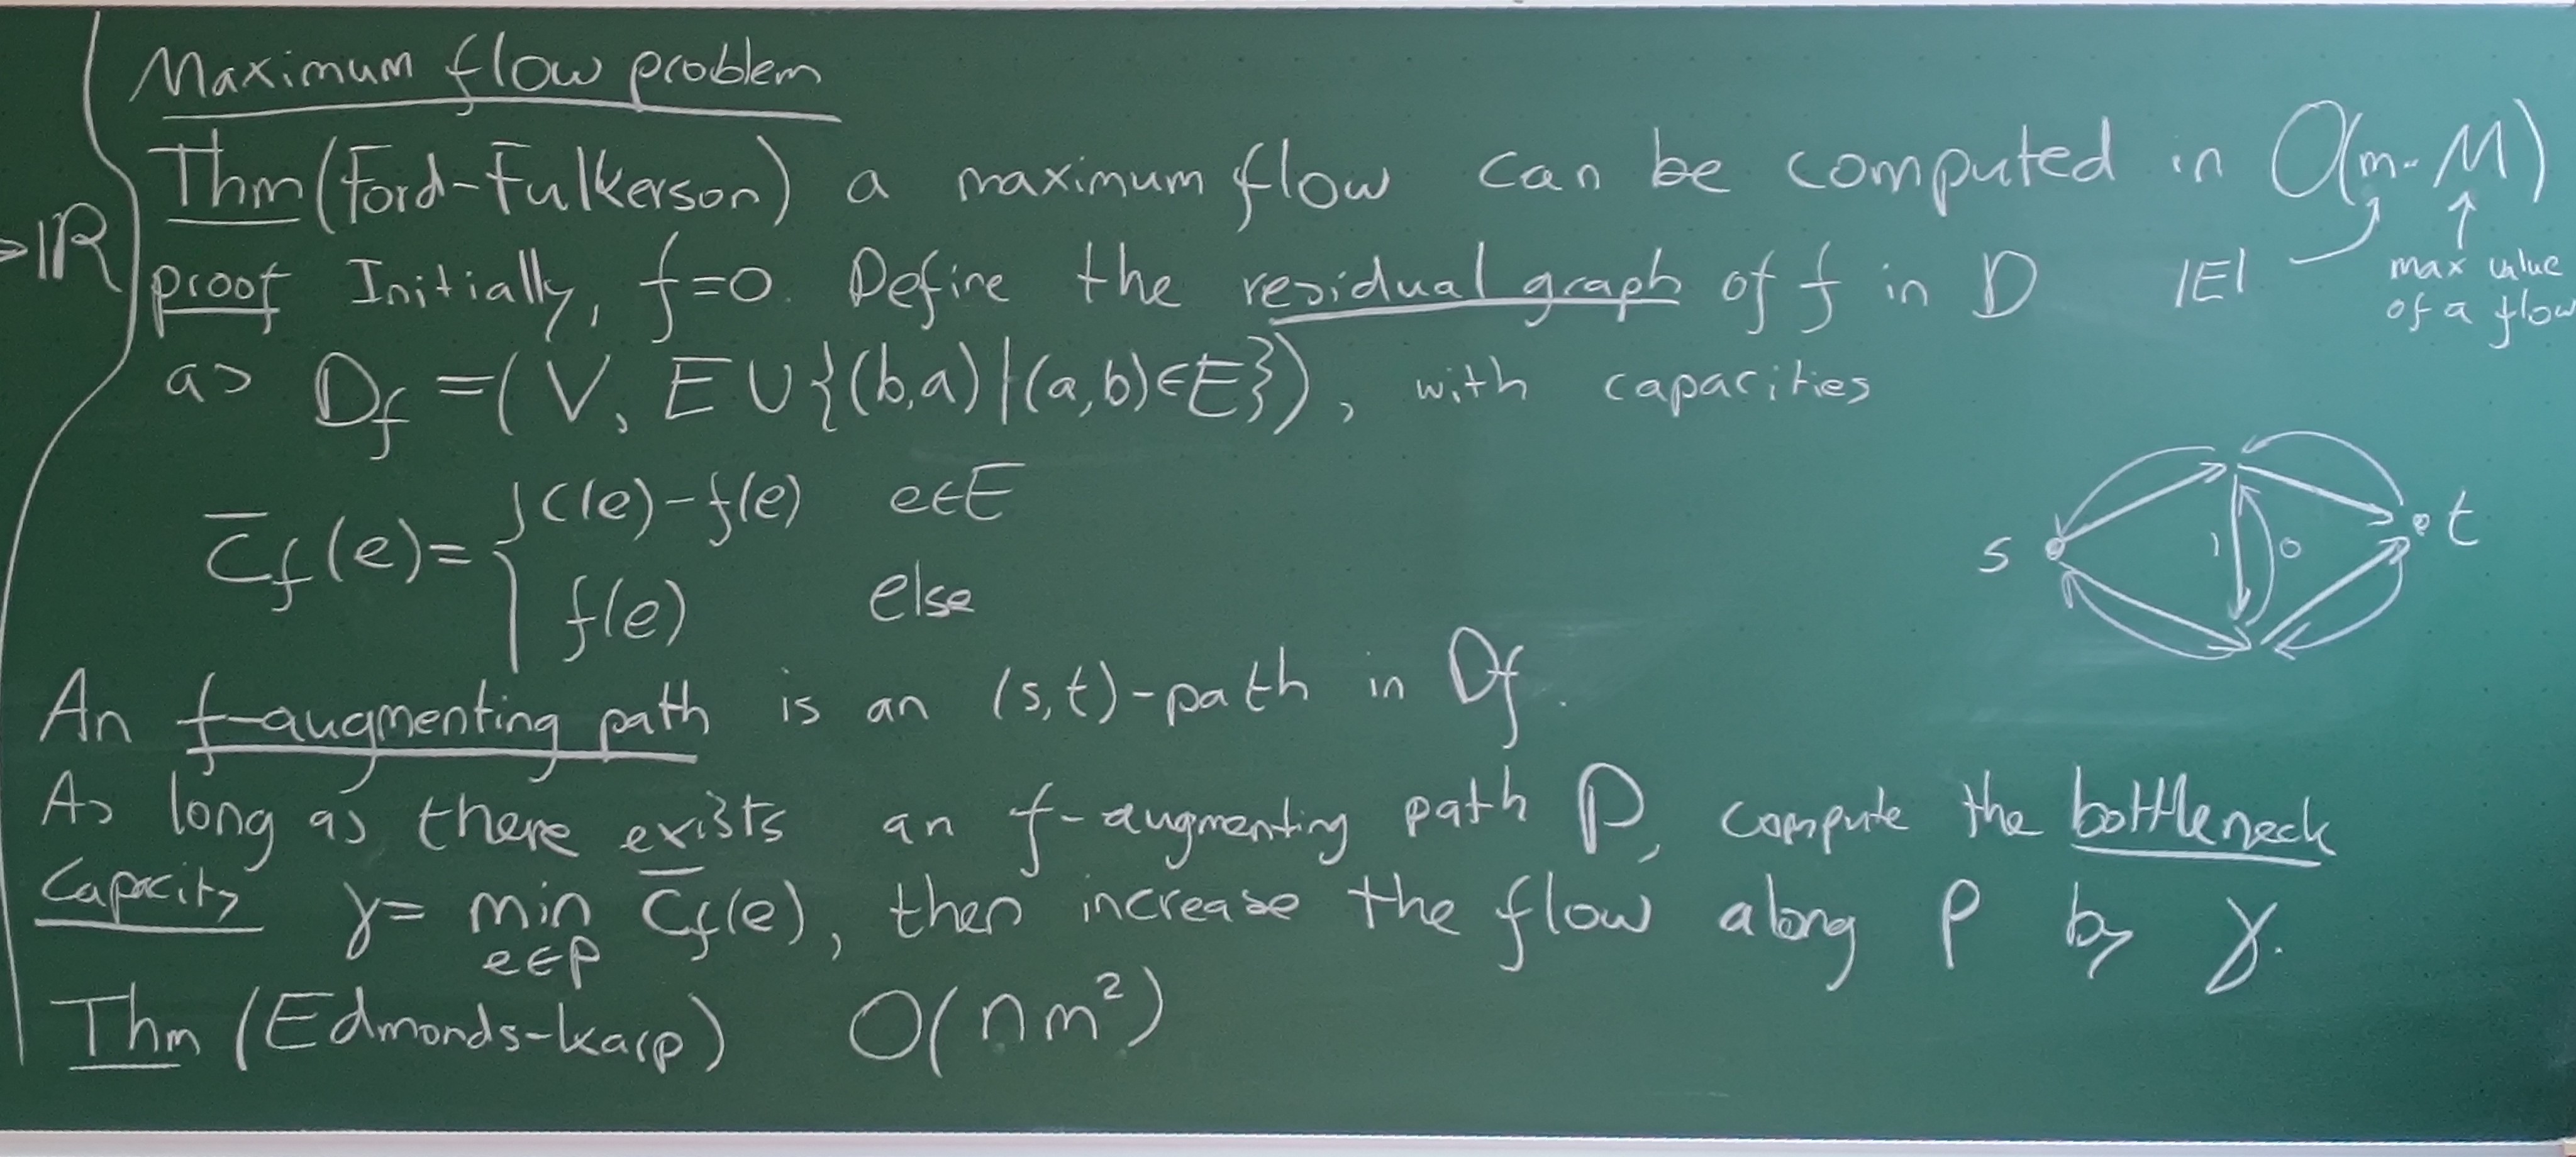 Maximum flow problem
Thm (Ford-Fulkerson) a maximum flow can be computed in O(m·M)
→ℝ
proof Initially, f=0. Define the residual graph of f in D
|E|
max value
of a flow
as D_f = (V, E ∪ {(b,a) | (a,b)∈E}), with capacities
c̄_f(e) = { c(e)-f(e) e∈E
f(e) else
s 1 0 t
An f-augmenting path is an (s,t)-path in D_f.
As long as there exists an f-augmenting path P, compute the bottleneck
capacity γ = min c̄_f(e), then increase the flow along P by γ.
e∈P
Thm (Edmonds-Karp) O(nm²)